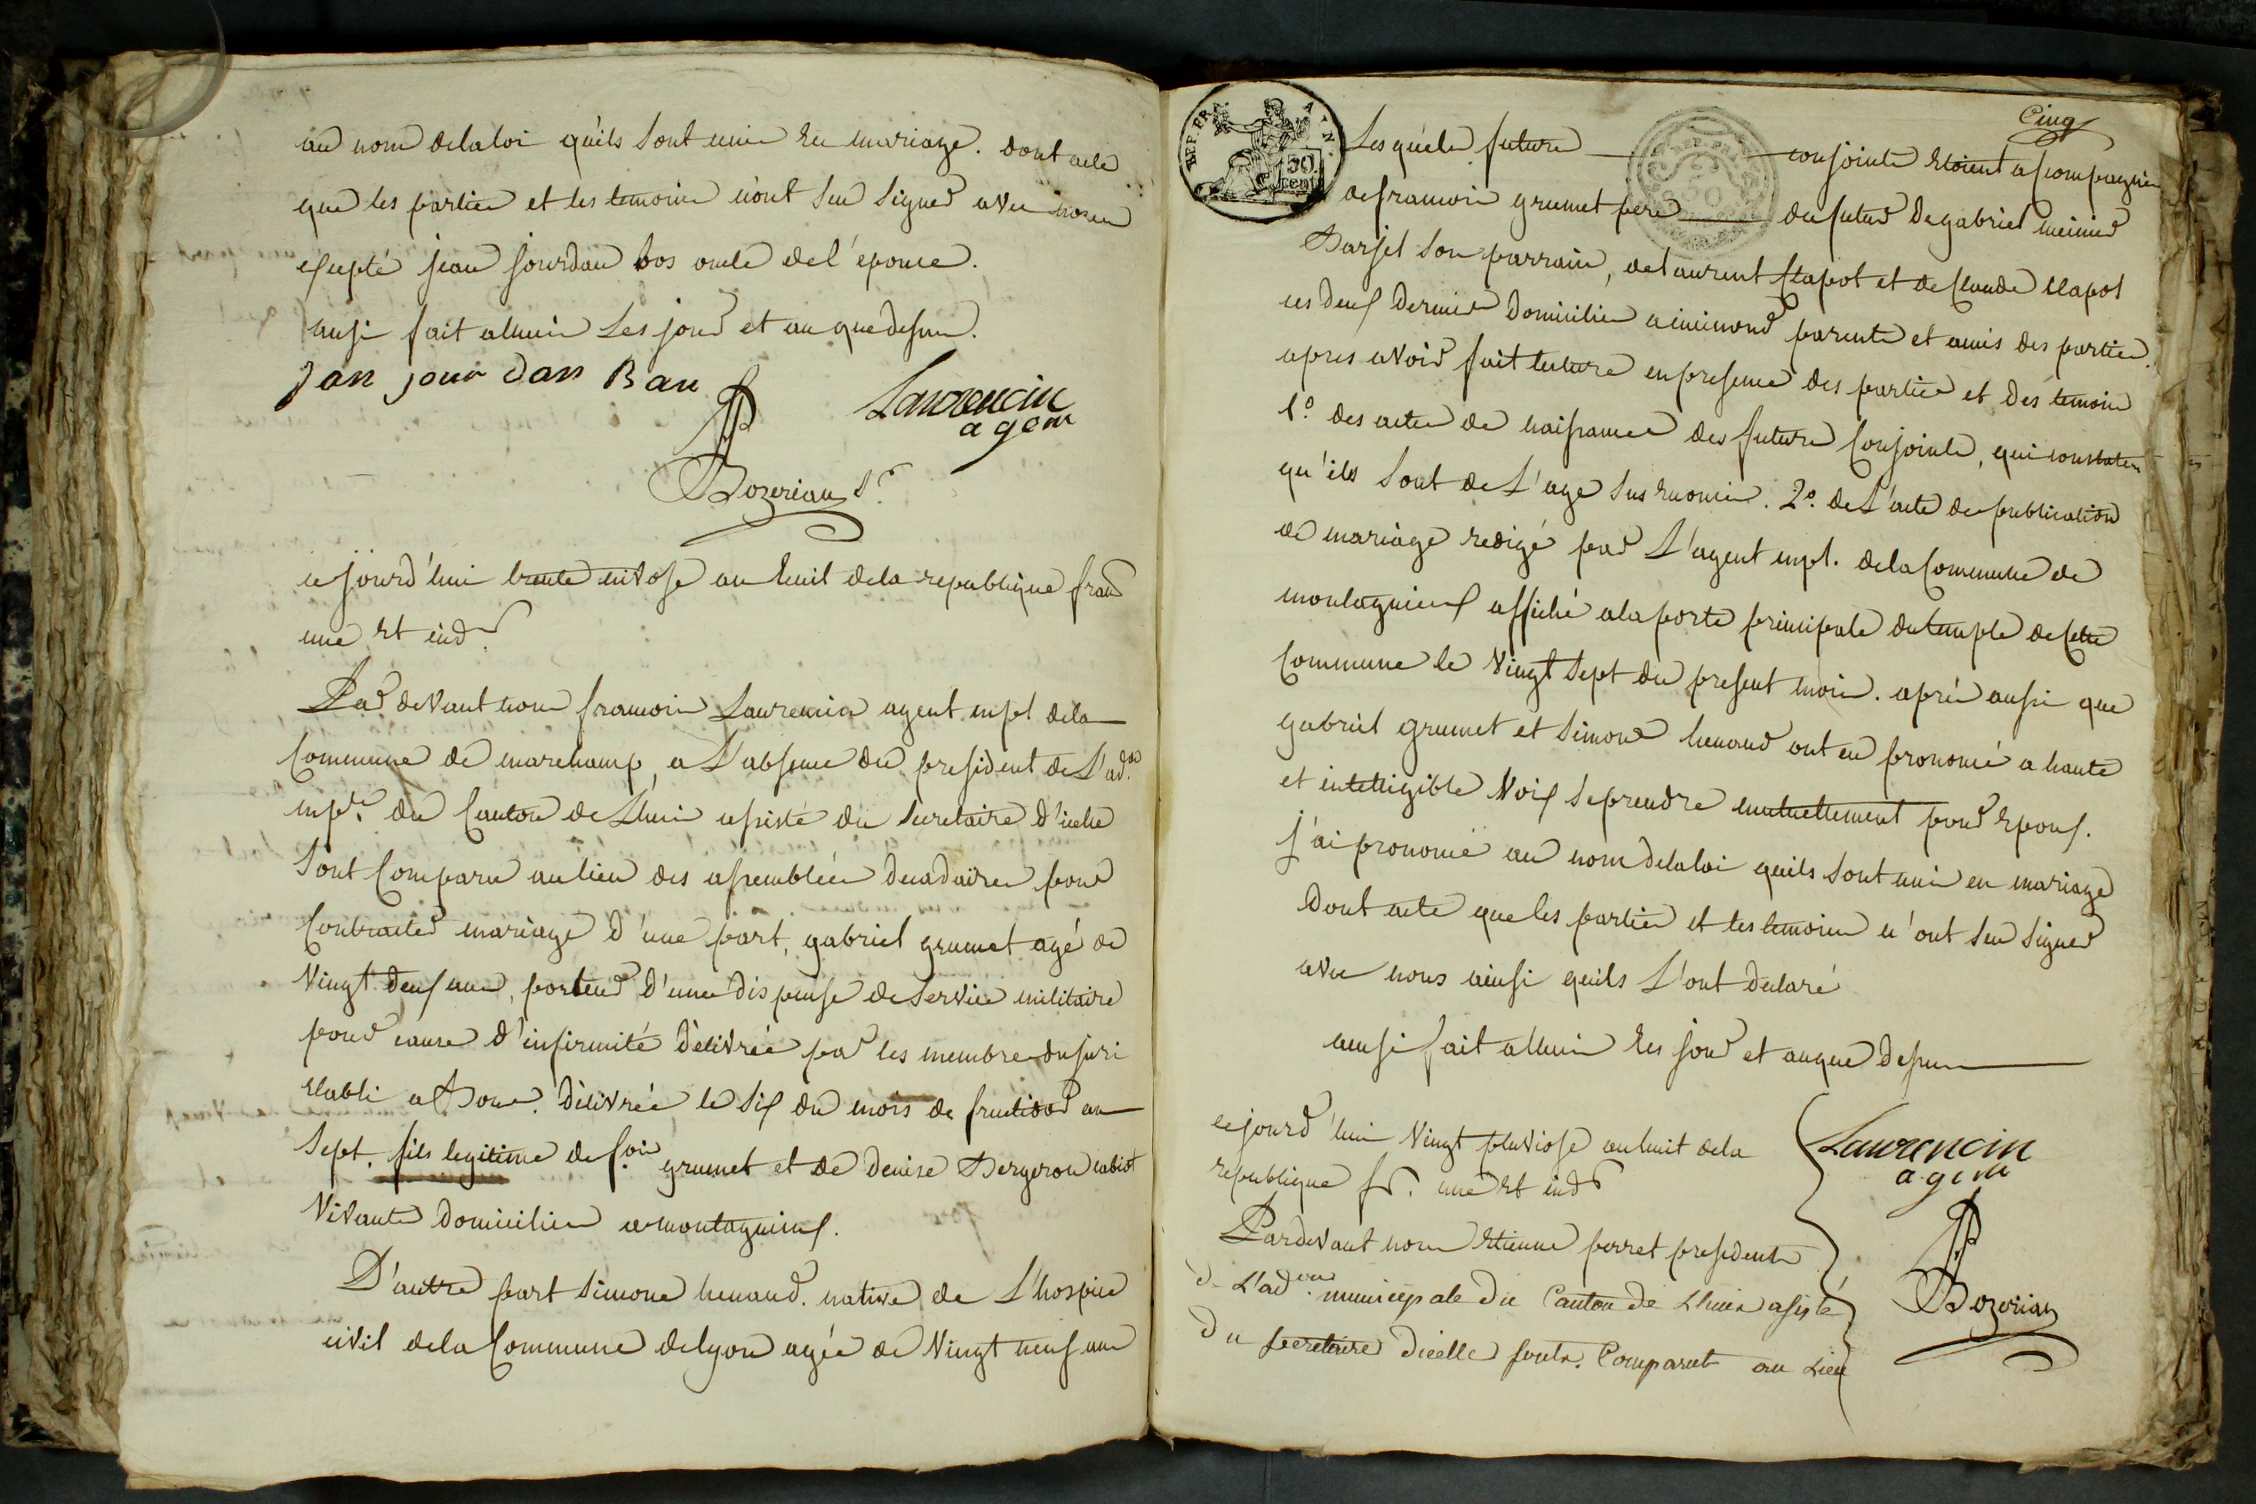 au nom dela loi qu'ils sont unis en mariage. dont acte
que les parties et les temoins n'ont seu signer avec nous
excepté jean jourdan bos oncle de l'épouse.
ainsi fait a lhuis les jour et an que dessus.
Jan jour dan Bau
Laurencin
agent
Bozerian S.re
cejourd'hui trente nivose an huit dela republique fran
une et ind.
Par devant nous francois Laurencin agent mpl dela
Commune de marchamp, a L'absence du president de L'ad.on
mp.le du Canton de Lhuis assisté du secretaire d'icelle
sont Comparu au lieu des assemblées decadaires pour
Contracter mariage d'une part, gabriel grumet agé de
Vingt deux ans, porteur d'une dispense de service militaire
pour cause d'infirmité délivrée par les membres du juri
etabli a Bourg. délivrée le six du mois de fructidor an
sept. fils legitime de f.ois grumet et de denise Bergeron
Vivants domiciliés a montagnieux.
D'autre part simone henaud. native de L'hospice
civil dela Commune de lyon agée de Vingt neuf ans
Cinq
REP. FRA
50
cent
Lesquels futurs conjoints etoient accompagnés
de francois grumet pere du futur de gabriel meinier
Barjet son parrain, de laurent Clapot et de Claude clapot
ces deux derniers domiciliés a inimond parents et amis des parties.
apres avoir fait lecture en presence des parties et des temoins
1.o des actes de naissance des futurs Conjoints, qui constatent
qu'ils sont de L'age sus enoncé. 2.o de L'acte de publication
de mariage redigé par L'agent mpl. dela Commune de
montagnieux affiché a la porte principale du temple de cette
Commune le Vingt sept du present mois. après aussi que
gabriel grumet et simone henaud ont eu prononcé a haute
et intelligible Voix se prendre mutuellement pour epoux.
j'ai prononcé au nom dela loi qu'ils sont unis en mariage
dont acte que les parties et les temoins n'ont seu signer
avec nous ainsi qu'ils L'ont declaré
ainsi fait a lhuis les jour et an que dessus
Laurencin
agent
Bozerian
cejourd'hui Vingt pluviose an huit dela
republique fr. une et ind
Pardevant nous Etienne perret president
de L'ad.on municipale du Canton de Lhuis assisté
du secretaire dicelle sont Comparut au Lieu